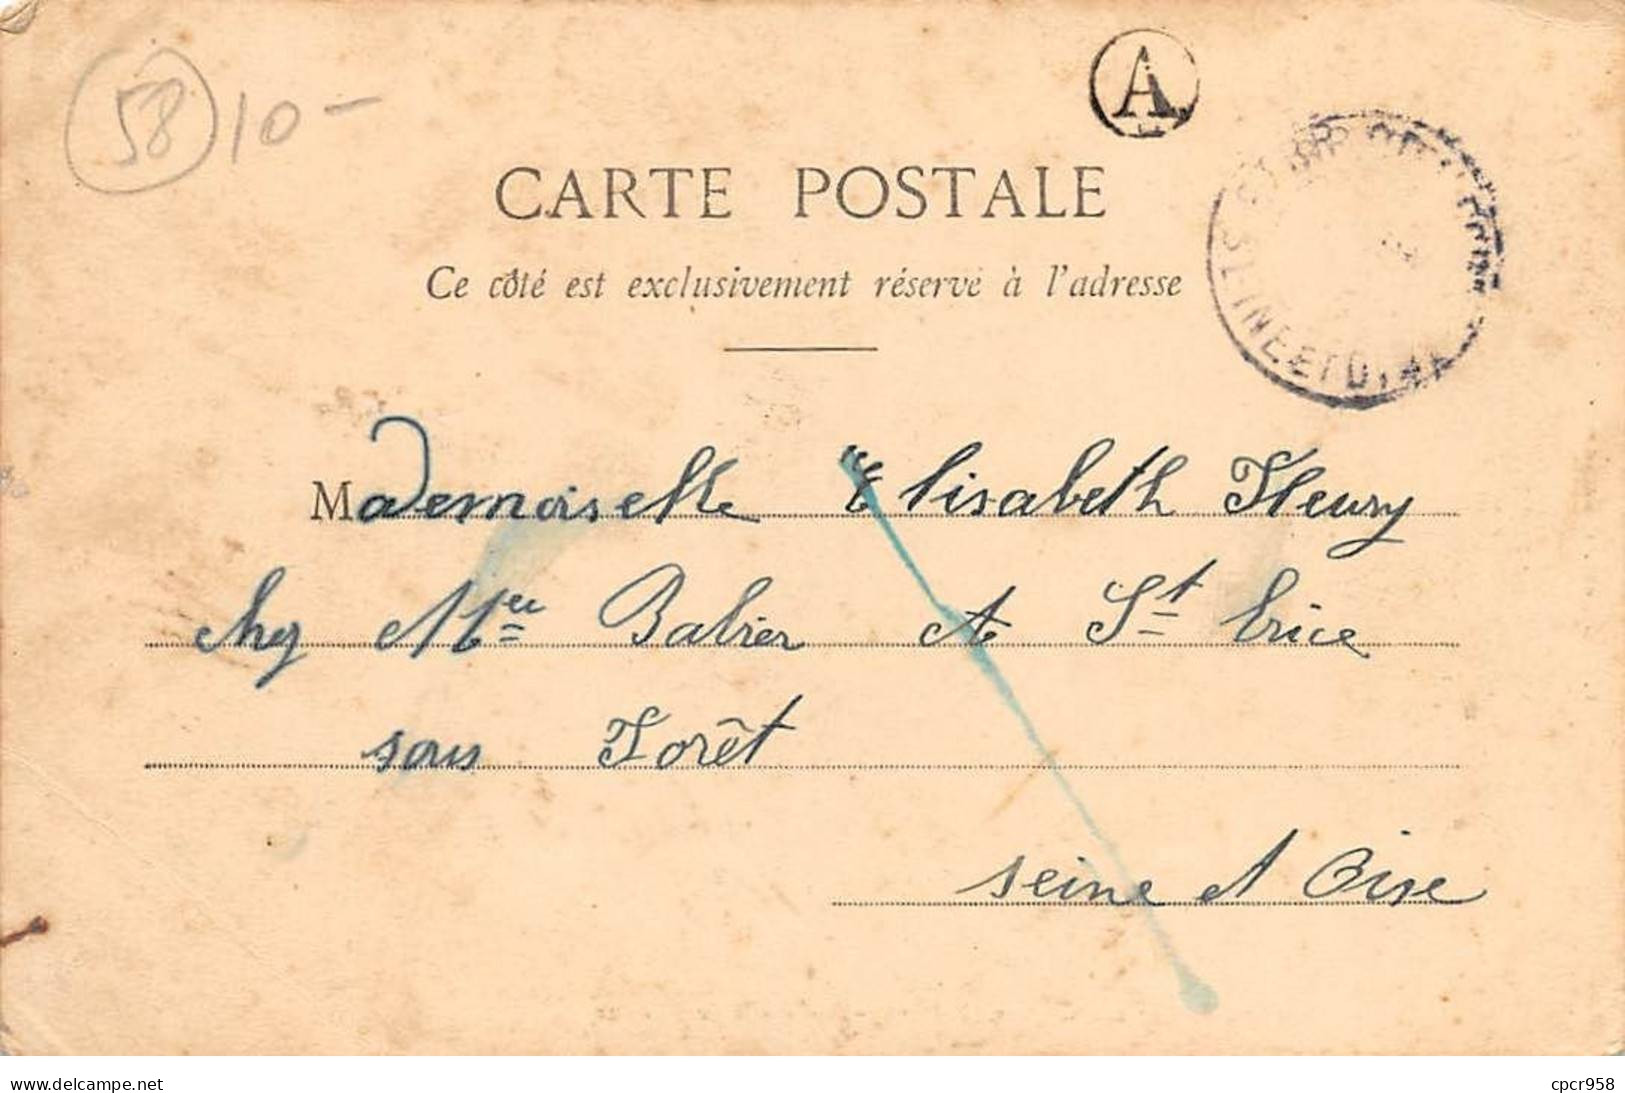 58 10 –
A
CARTE POSTALE
Ce côté est exclusivement réservé à l'adresse
Mademoiselle Elisabeth Fleury
chez Mme Babier A St brice
sous Forêt
Seine et Oise
www.delcampe.net
cpcr958